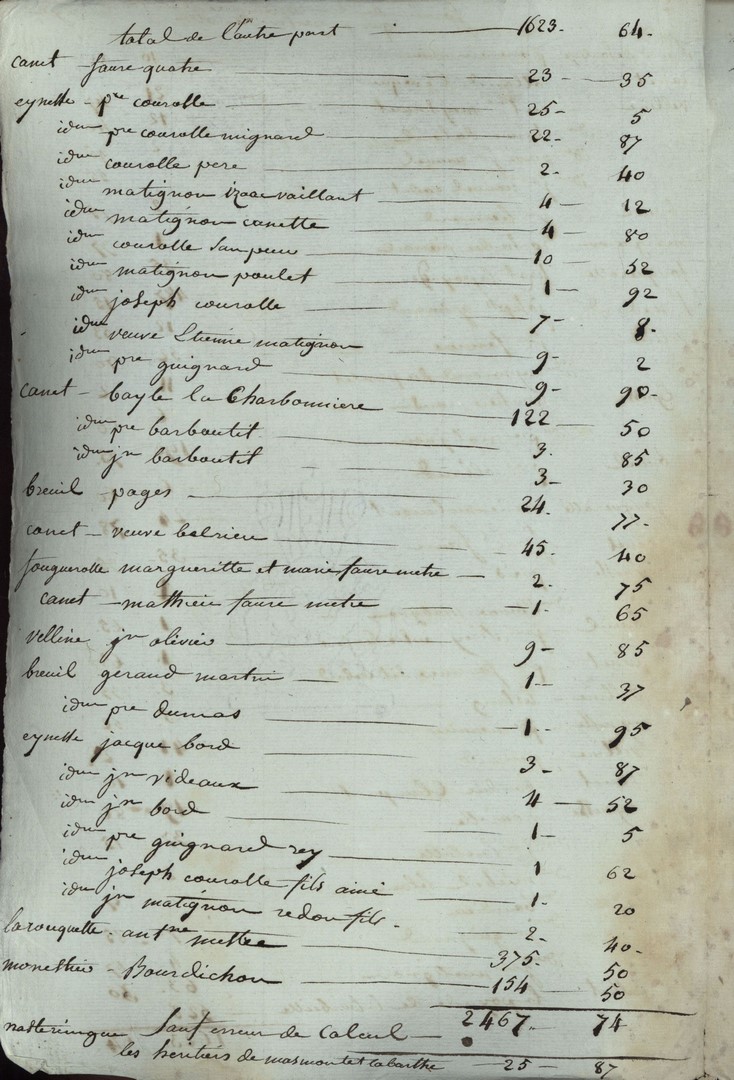 total de l'autre part 1623. 64.
canet faure quatre 23 35
eynette pre couralle 25 5
idem pre couralle mignard 22 87
idem couralle pere 2 40
idem matignon izaac vaillant 4 12
idem matignon canette 4 80
idem couralle sanpeur 10 52
idem matignon poulet 1 92
idem joseph couralle 7 8
idem veuve Etienne matignon 9 2
idem pre guignard 9 90
canet bayle la Charbonniere 122 50
idem pre barboutit 3. 85
idem jn barboutit 3 30
breuil pages 24. 77
canet veuve belrieu 45. 40
fouguerolle margueritte et marie faure metre 2. 75
canet mathieu faure metre 1. 65
velline jn olivier 9 85
breuil geraud martin 1 37
idem pre dumas 1. 95
eynette jacque bord 3 87
idem jn videaux 4 52
idem jn bord 1 5
idem pre guignard rey 1 62
idem joseph couralle fils ainé 1. 20
idem jn matignon redon fils. 2. 40.
larouquette. antne mettee 375. 50
monestier Bourdichon 154 50
Sauf erreur de Calcul 2467. 74
nastringue les heritiers de masmontet labarthe 25 87